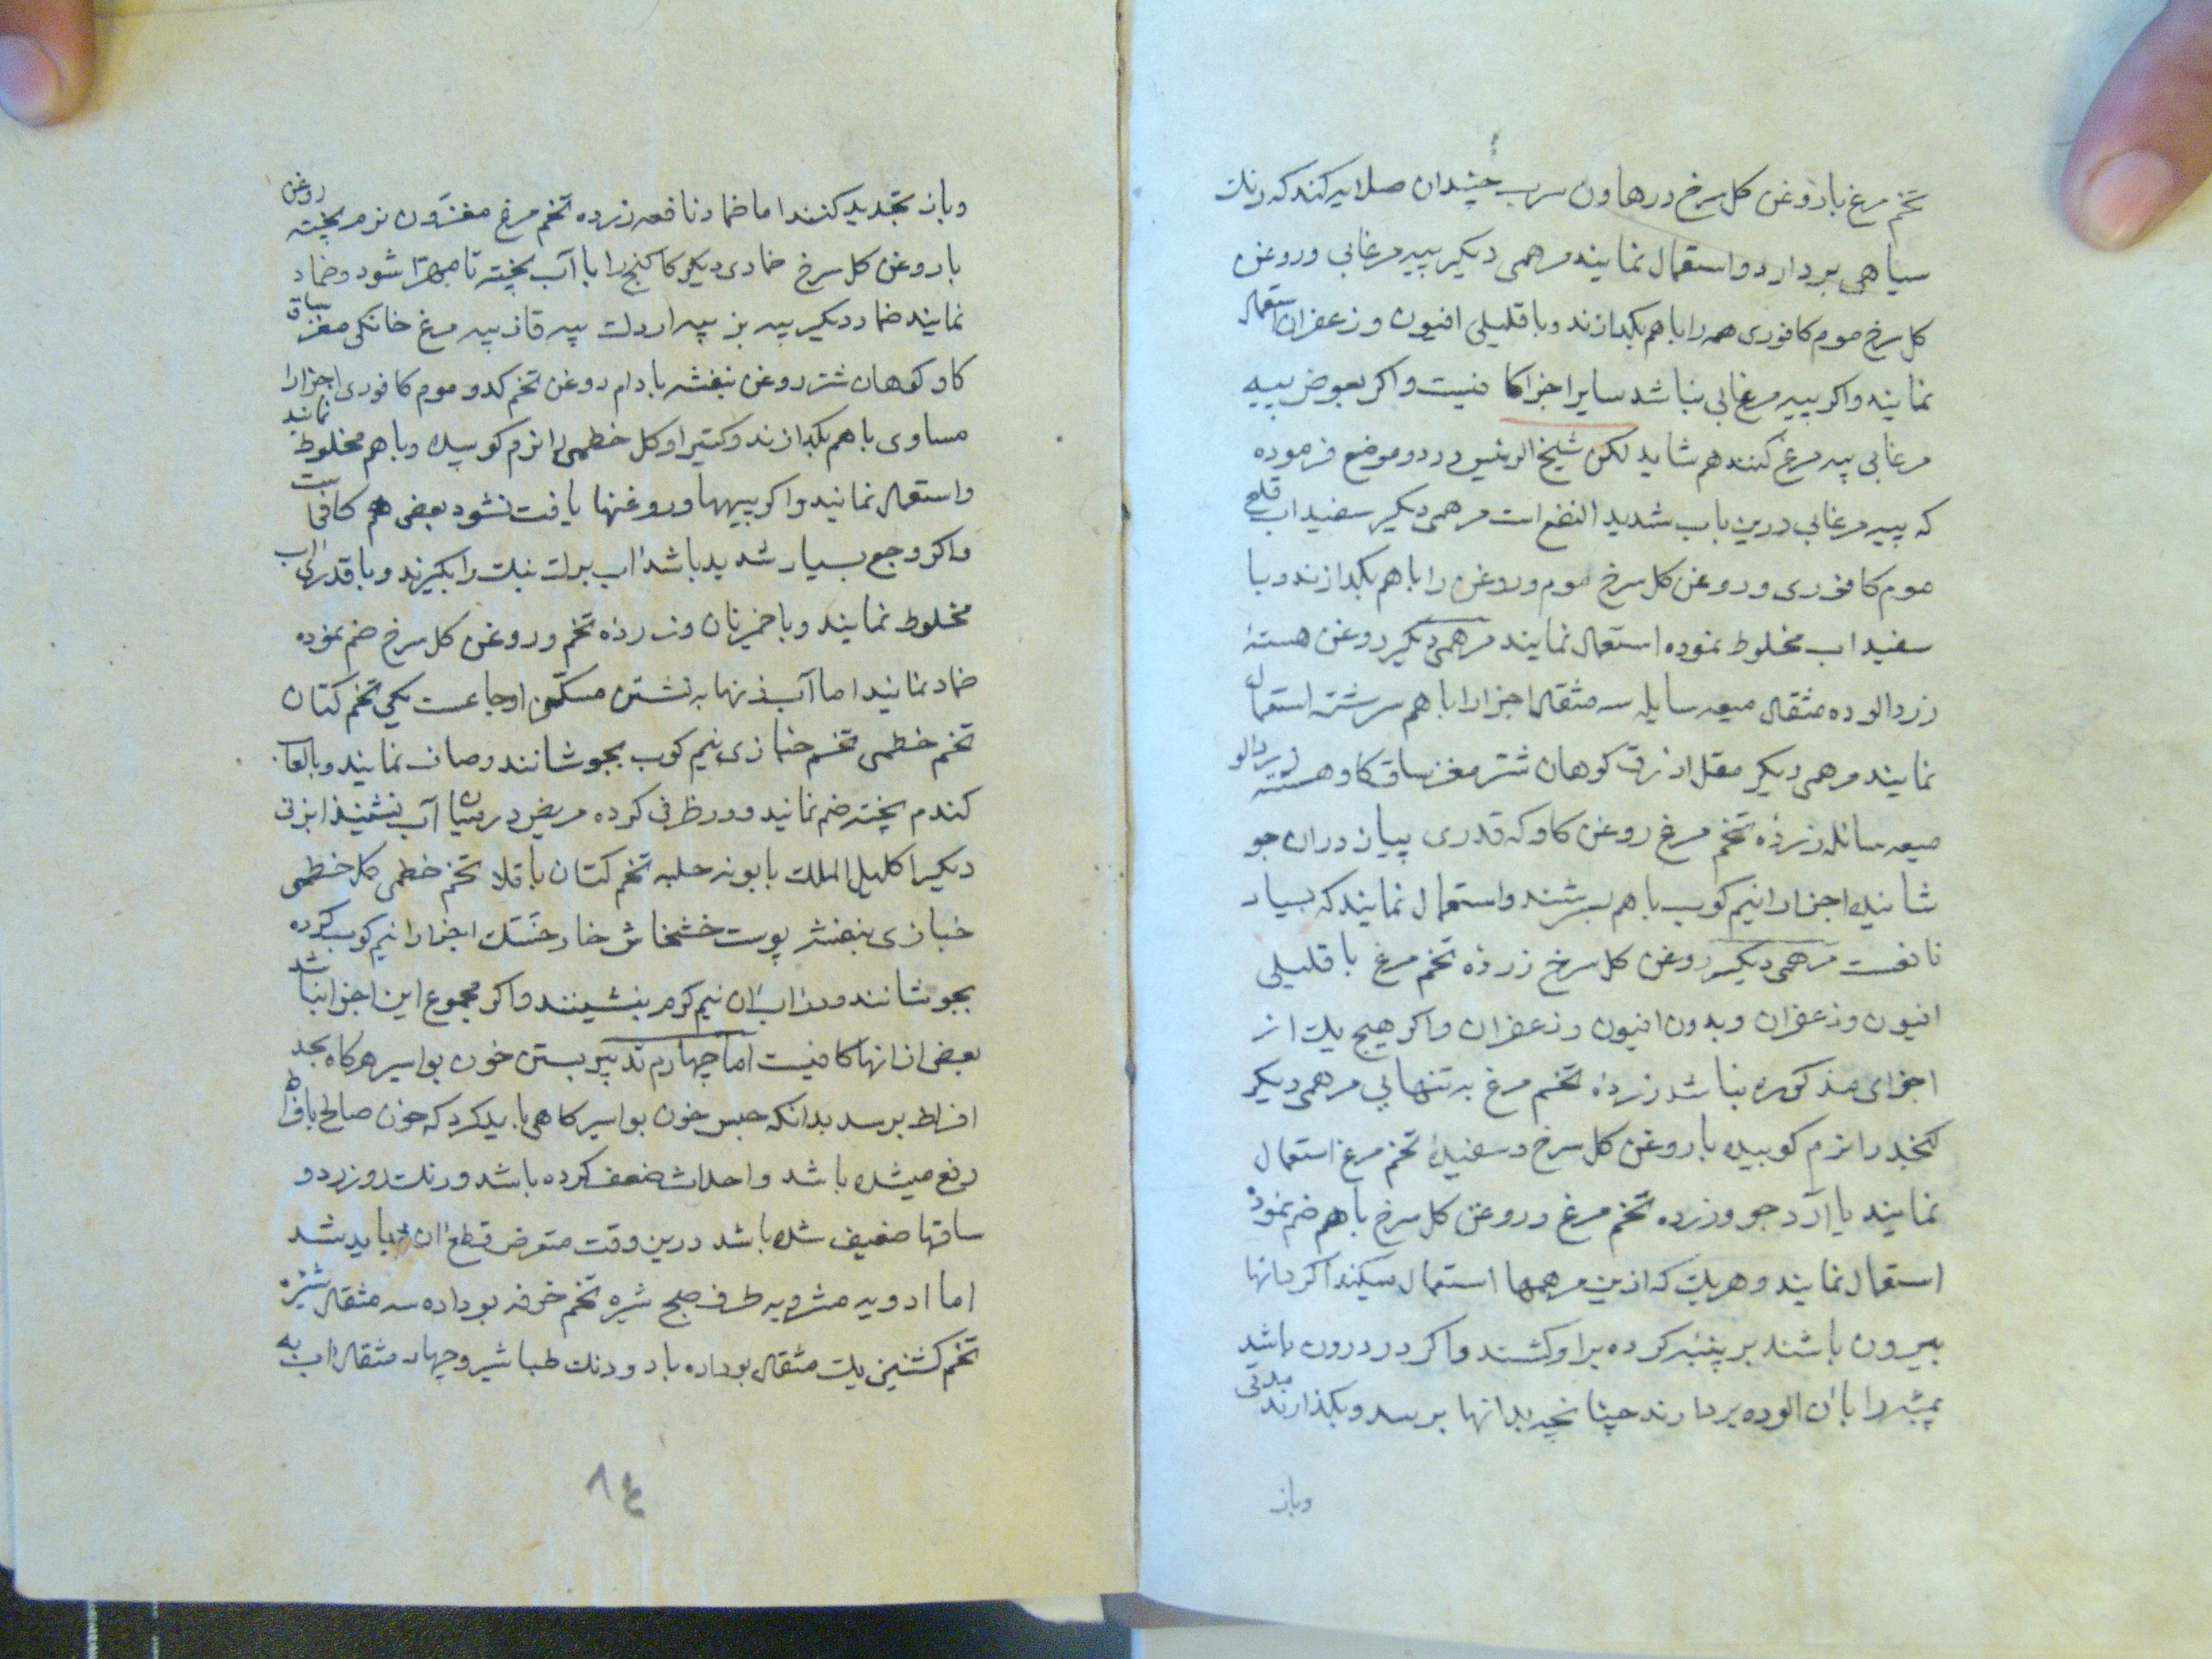 تخم مرغ با روغن کل سرخ در هاون سرب چندان صلایه کند که رنک
سیاهی بردارد و استعمال نمایند مرهمی دیکر پیه مرغابی و روغن
کل سرخ موم کافوری همه را با هم بکدازند و با قلیلی افیون و زعفران استعمال
نمایند و اکر پیه مرغابی نباشد سایر اجزا کافیست و اکر بعوض پیه
مرغابی پیه مرغ کنند هم شاید لکن شیخ الرئیس در دو موضع فرموده
که پیه مرغابی درین باب شدید النفع است مرهمی دیکر سفیداب قلعی
موم کافوری و روغن کل سرخ موم و روغن را با هم بکدازند و با
سفیداب مخلوط نموده استعمال نمایند مرهمی دیکر روغن هستهٔ
زردالو ده مثقال میعه سایله سه مثقال اجزا را با هم سرشته استعمال
نمایند مرهمی دیکر مقل ازرق کوهان شتر مغز ساق کاو هسته زردالو
میعه سائله زردهٔ تخم مرغ روغن کاو که قدری پیاز در ان جو
شانیده اجزا را نیم کوب با هم بسرشند و استعمال نمایند که بسیار
نافعست مرهمی دیکر روغن کل سرخ زردهٔ تخم مرغ با قلیلی
افیون و زعفران و بدون افیون و زعفران و اکر هیچ یک از
اجزای مذکوره نباشد زردهٔ تخم مرغ به تنهایی مرهمی دیکر
کنجد را نرم کوبیده با روغن کل سرخ و سفیدهٔ تخم مرغ استعمال
نمایند یا آرد جو و زرده تخم مرغ و روغن کل سرخ با هم ضم نموده
استعمال نمایند و هریک که ازین مرهمها استعمال میکنند اکر دانها
بیرون باشند بر پنبه کرده بر او کشند و اکر در درون باشد
پنبه را بان الوده بردارند چنانچه بدانها برسد و بکذارند مدتی
وباز
و باز تجدید کنند اما ضماد نافعه زرده تخم مرغ مغز نان نرم پخته روغن
با روغن کل سرخ ضمادی دیکر کاکنج را با آب پخته تا مهرّا شود و ضماد
نمایند ضماد دیکر پیه بز پیه اردک پیه قاز پیه مرغ خانکی مغز ساق
کاو کوهان شتر روغن بنفشه بادام روغن تخم کدو موم کافوری اجزا را
مساوی با هم بکدازند و کتیرا و کل خطمی را نرم کوبیده و با هم مخلوط نمایند
و استعمال نمایند و اکر پیهها و روغنها یافت نشود بعضی هم کافیست
و اکر وجع بسیار شدید باشد اب برک بنک را بکیرند و با قدری اب
مخلوط نمایند و با خمیر نان و زرده تخم و روغن کل سرخ ضم نموده
ضماد نمایند اما آبزنها به نشستن مسکّن اوجاعست یکی تخم کتان
تخم خطمی تخم خبازی نیم کوب بجوشانند و صاف نمایند و با لعاب
کندم پخته ضم نمایند و در ظرفی کرده مریض در میان آب بنشیند ابزنی
دیکر اکلیل الملک بابونه حلبه تخم کتان باقلا تخم خطمی کل خطمی
خبازی بنفشه پوست خشخاش خار خسک اجزا را نیم کوب کرده
بجوشانند و در اب ان نیم کرم بنشینند و اکر مجموع این اجزا نباشد
بعضی از انها کافیست اما چهارم تدبیر بستن خون بواسیر هرکاه بحد
افراط برسد بدانکه حبس خون بواسیر کاهی باید کرد که خون صالح بافراط
رفع میشده باشد و احداث ضعف کرده باشد و رنک رو زرد و
ساقها ضعیف شده باشد درین وقت متعرض قطع ان بباید شد
اما ادویه مشروبه طرف صبح شیره تخم خرفه بوداده سه مثقال شیره
تخم کشنیز یک مثقال بوداده با دو دنک طباشیر و چهار مثقال اب به
۸٤